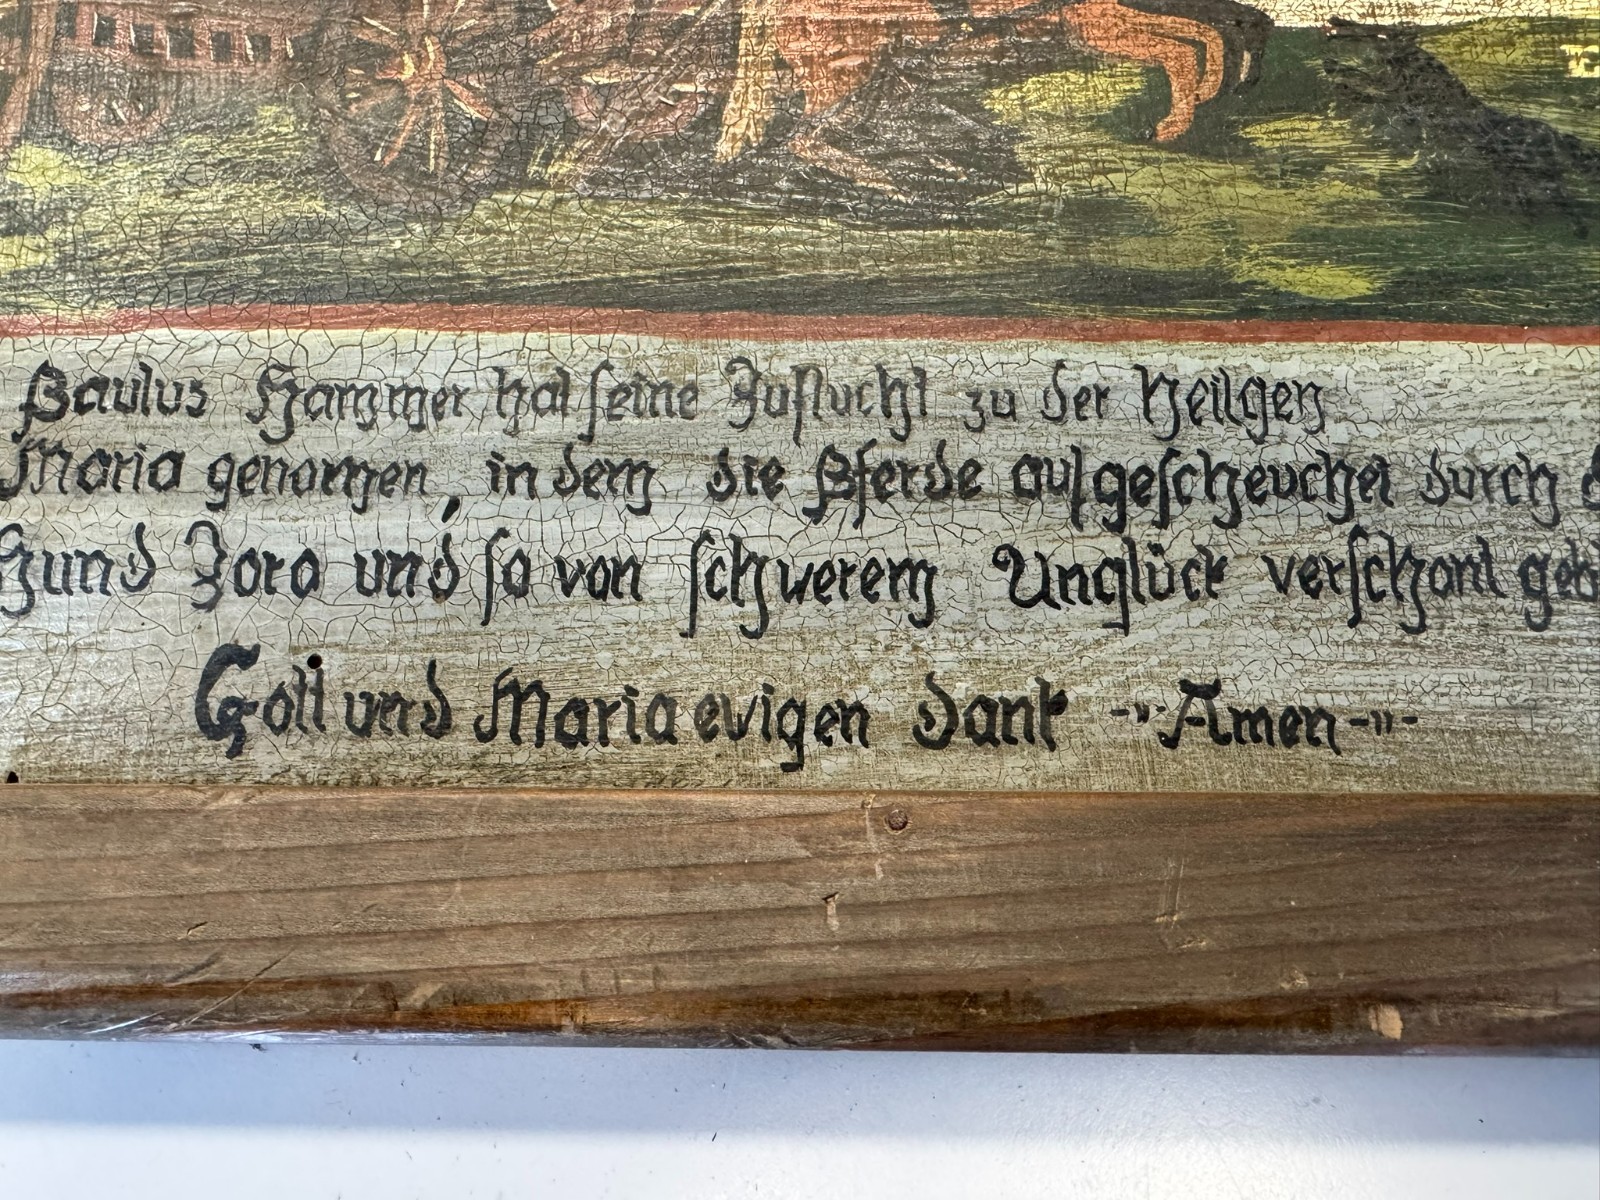 Paulus Hammer hat seine Zuflucht zu der Heilgen
Maria genomen, in dem die Pferde aufgescheuchet durch
Hund Zoro und so von schwerem Unglück verschont geb
Gott und Maria ewigen Dank -"- Amen -"-